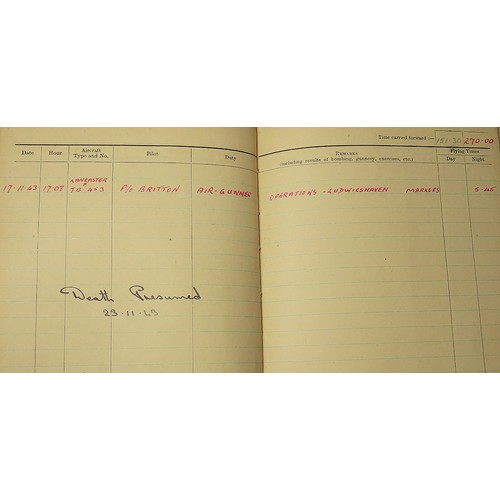 Time carried forward :— 151·30 270·00
Date Hour Aircraft Type and No. Pilot Duty Remarks (including results of bombing, gunnery, exercises, etc.) Flying Times Day Night
17·11·43 17·08 LANCASTER P/O BRITTON AIR-GUNNER OPERATIONS - LUDWIGSHAVEN MARKERS 5·45
Death Presumed
23·11·43